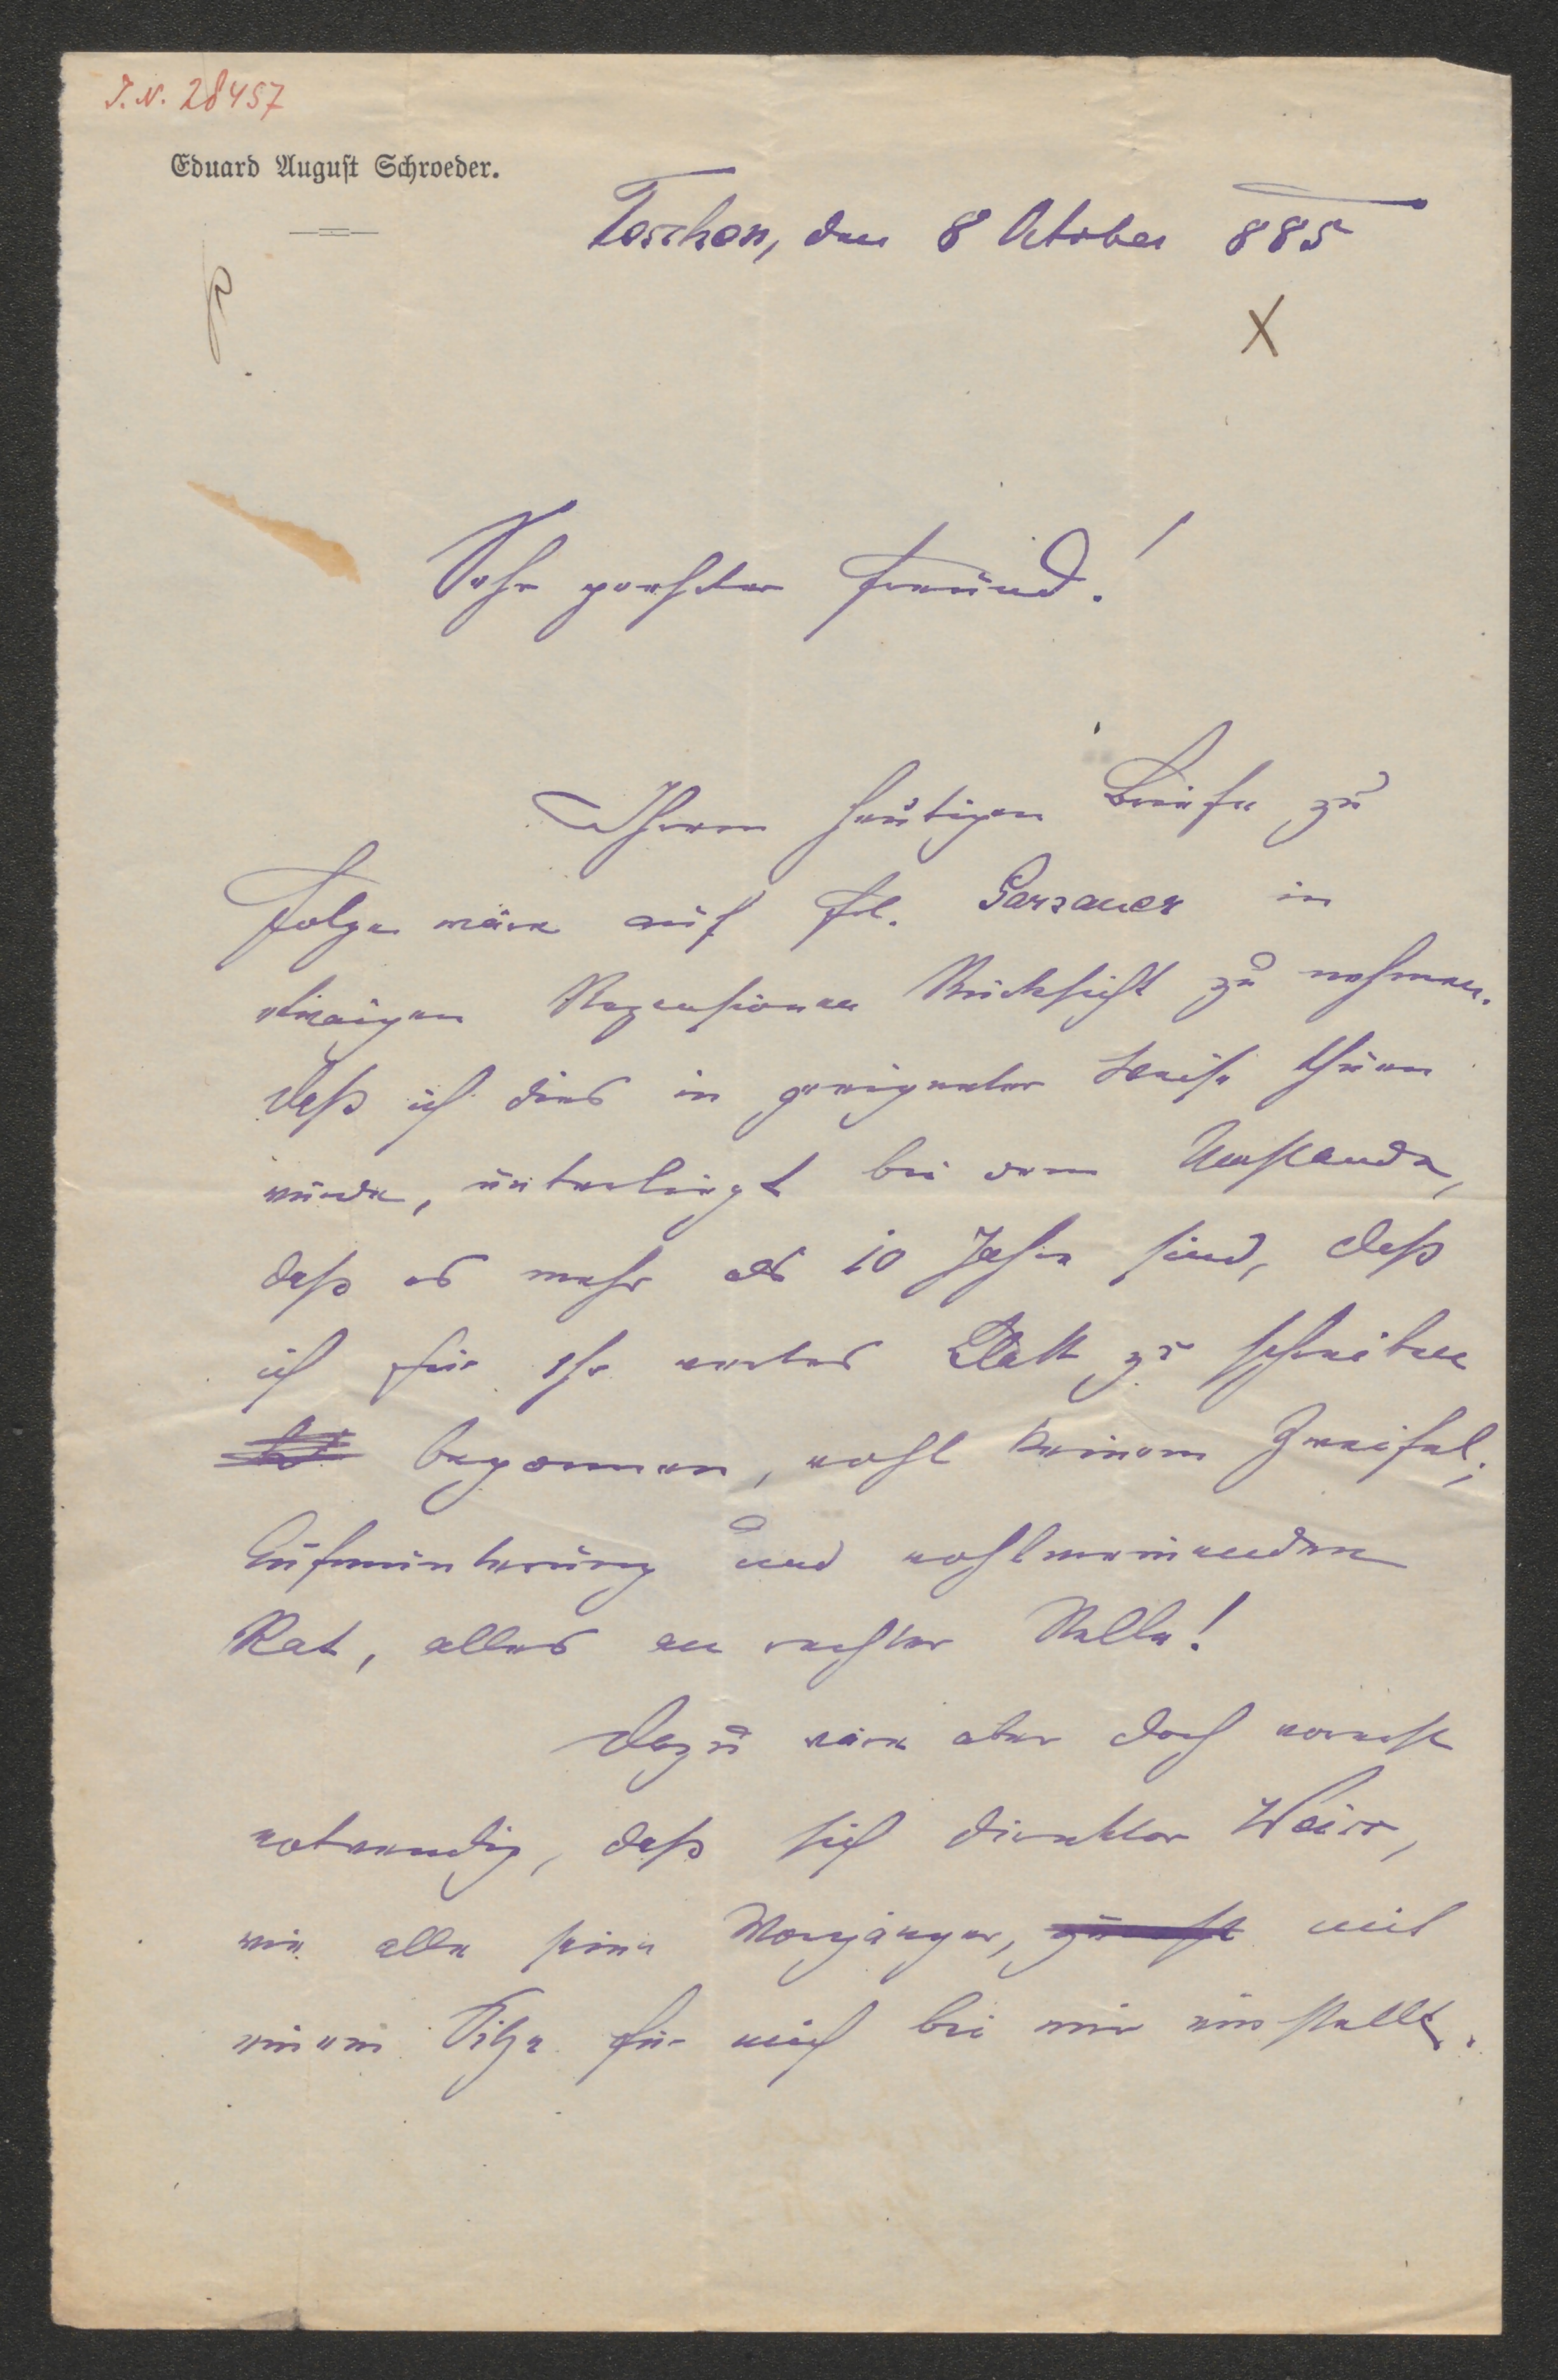 I. N. 28457
Eduard August Schroeder.
Teschen, den 8 Oktober 885
X
Sehr geehrter Freund!
Ihrem heutigen Briefe zu
Folge wäre auf Frl. Garzauer in
etwaigen Rezensionen Rücksicht zu nehmen.
Daß ich dies in geeigneter Weise thuen
würde, unterliegt bei dem Umstande,
daß es mehr als 10 Jahre sind, daß
ich für Ihr wertes Blatt zu schreiben
begonnen, wohl keinem Zweifel;
Aufmunterung und wohlmeinenden
Rat, alles an rechter Stelle!
Dazu wäre aber doch vorerst
notwendig, daß sich Direktor Weiss,
wie alle seine Vorgänger, mit
einem Sitze für mich bei mir einstellt.